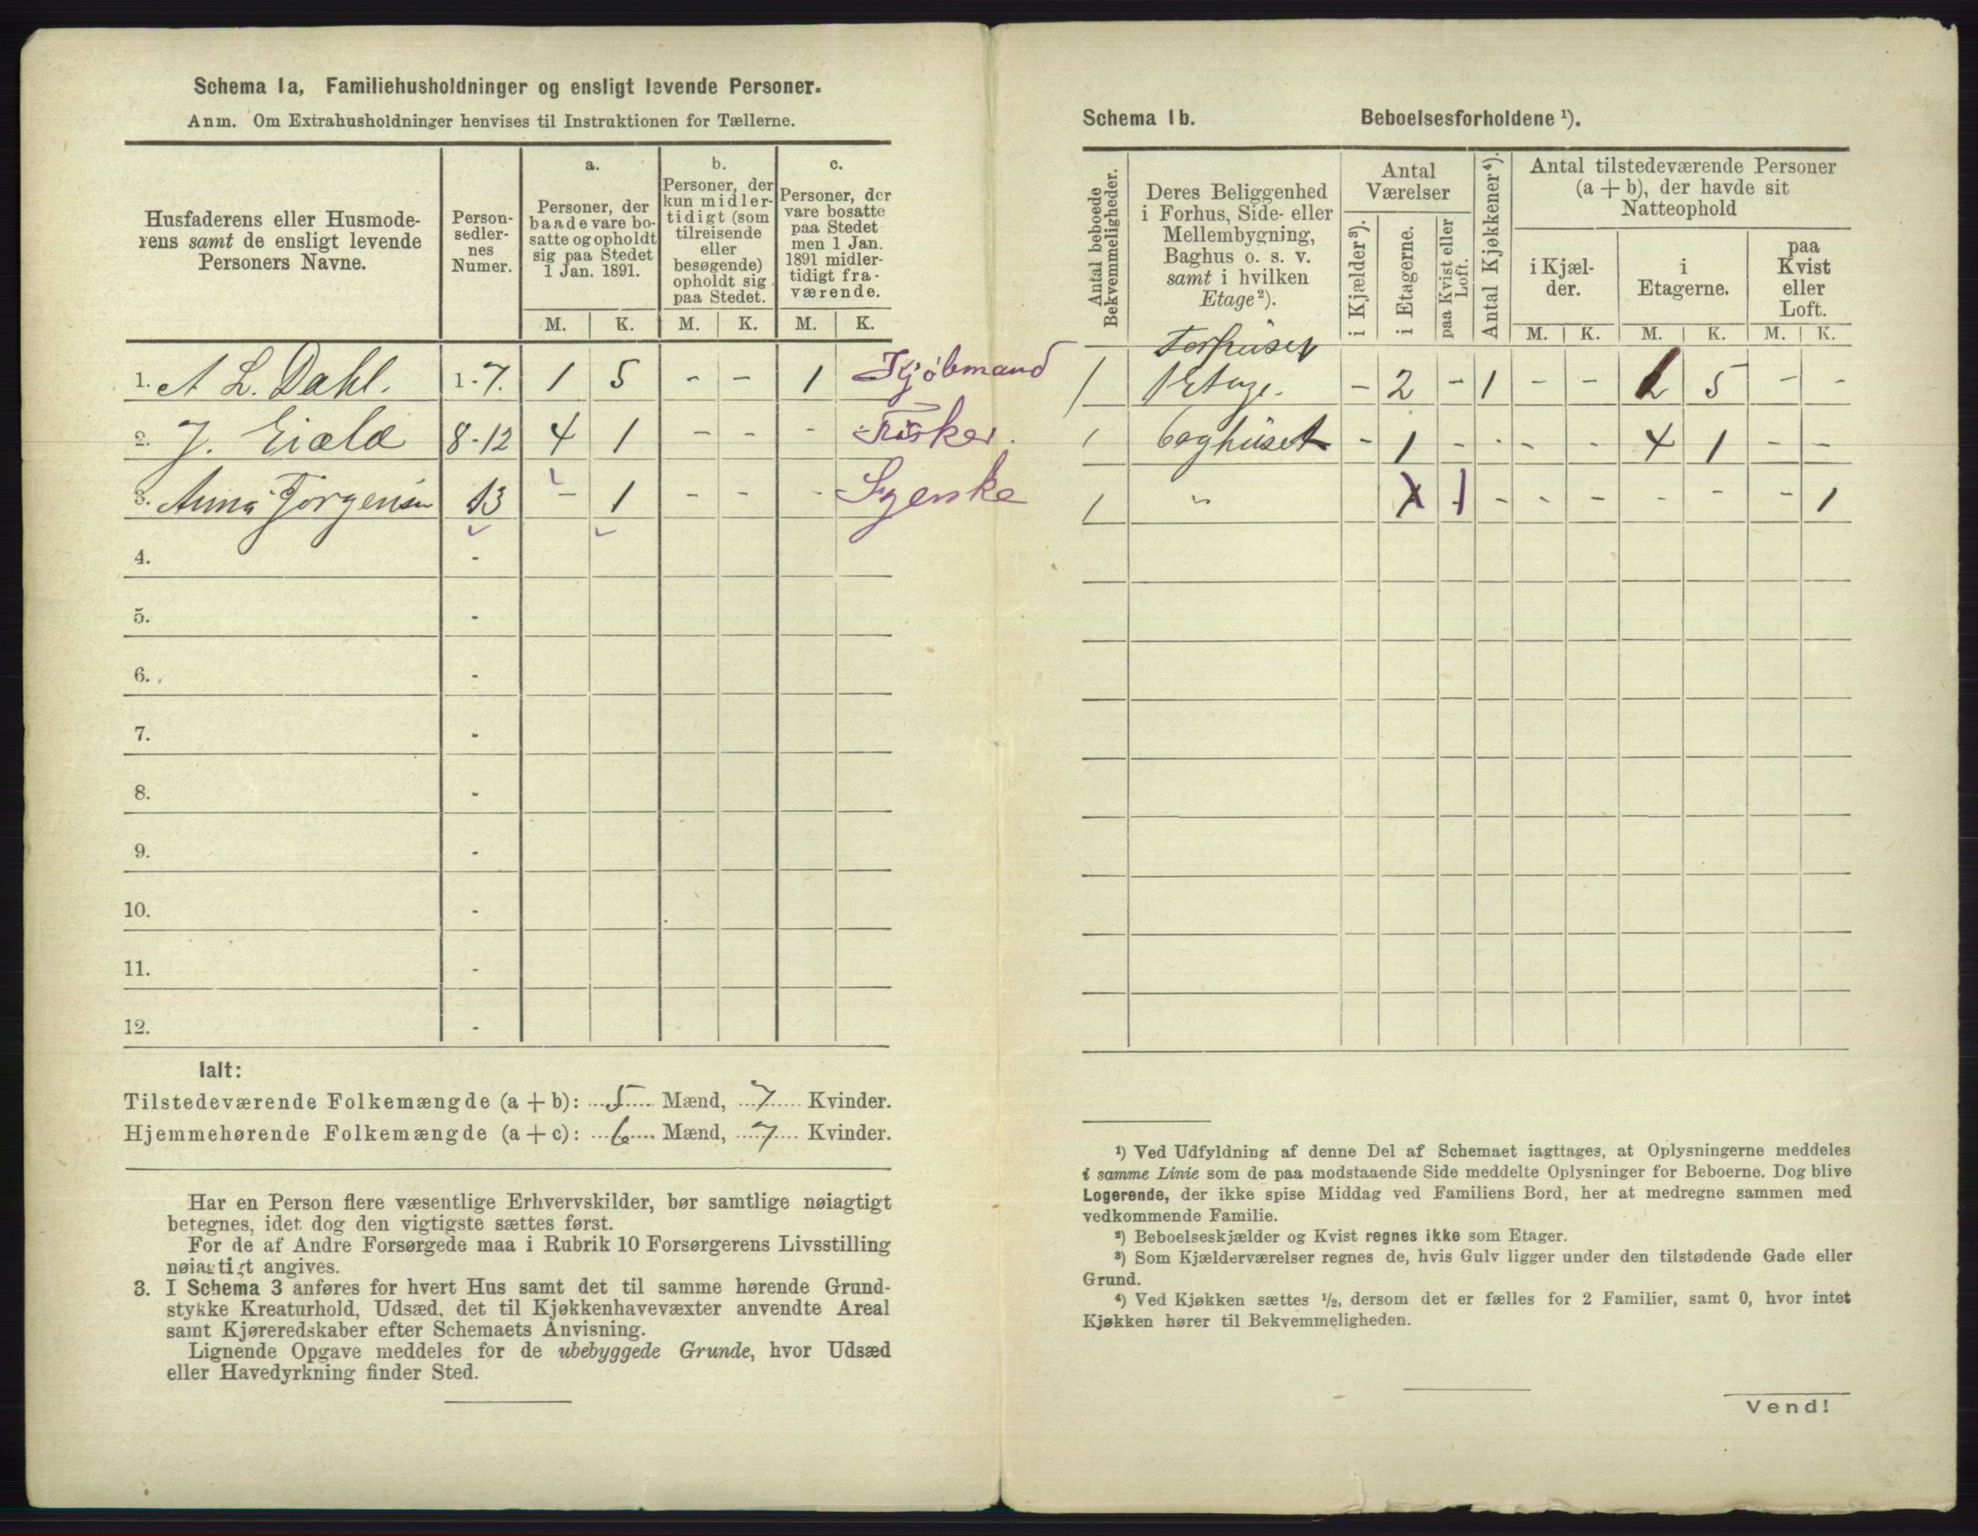 Schema 1a, Familiehusholdninger og ensligt levende Personer.
Anm. Om Extrahusholdninger henvises til Instruktionen for Tællerne.
Husfaderens eller Husmoderens samt de ensligt levende Personers Navne.
Personsedlernes Numer.
a. Personer, der baade vare bosatte og opholdt sig paa Stedet 1 Jan. 1891.
b. Personer, der kun midlertidigt (som tilreisende eller besøgende) opholdt sig paa Stedet.
c. Personer, der vare bosatte paa Stedet men 1 Jan. 1891 midlertidigt fraværende.
M. K. M. K. M. K.
1. A L. Dahl. 1-7. 1 5 - - 1 Kjøbmand
2. J. 8-12 4 1 - - - Fisker.
3. Anna Jørgensen 13 - 1 - - - Syerske
4. -
5. -
6. -
7. -
8. -
9. -
10. -
11. -
12. -
Ialt:
Tilstedeværende Folkemængde (a + b): 5 Mænd, 7 Kvinder.
Hjemmehørende Folkemængde (a + c): 6 Mænd, 7 Kvinder.
Har en Person flere væsentlige Erhvervskilder, bør samtlige nøiagtigt
betegnes, idet dog den vigtigste sættes først.
For de af Andre Forsørgede maa i Rubrik 10 Forsørgerens Livsstilling
nøiagtigt angives.
3. I Schema 3 anføres for hvert Hus samt det til samme hørende Grund-
stykke Kreaturhold, Udsæd, det til Kjøkkenhavevæxter anvendte Areal
samt Kjøreredskaber efter Schemaets Anvisning.
Lignende Opgave meddeles for de ubebyggede Grunde, hvor Udsæd
eller Havedyrkning finder Sted.
Schema 1b. Beboelsesforholdene ¹).
Antal beboede Bekvemmeligheder.
Deres Beliggenhed i Forhus, Side- eller Mellembygning, Baghus o. s. v. samt i hvilken Etage ²).
Antal Værelser
i Kjælder ³).
i Etagerne.
paa Kvist eller Loft.
Antal Kjøkkener ⁴).
Antal tilstedeværende Personer (a + b), der havde sit Natteophold
i Kjælder.
i Etagerne.
paa Kvist eller Loft.
M. K. M. K. M. K.
Forhuset
1 1 Etage. - 2 - 1 - - 1 5 - -
1 baghuset - 1 - - - - 4 1 - -
1 " 1 - - - - - - 1
¹) Ved Udfyldning af denne Del af Schemaet iagttages, at Oplysningerne meddeles
i samme Linie som de paa modstaaende Side meddelte Oplysninger for Beboerne. Dog blive
Logerende, der ikke spise Middag ved Familiens Bord, her at medregne sammen med
vedkommende Familie.
²) Beboelseskjælder og Kvist regnes ikke som Etager.
³) Som Kjælderværelser regnes de, hvis Gulv ligger under den tilstødende Gade eller
Grund.
⁴) Ved Kjøkken sættes ½, dersom det er fælles for 2 Familier, samt 0, hvor intet
Kjøkken hører til Bekvemmeligheden.
Vend!